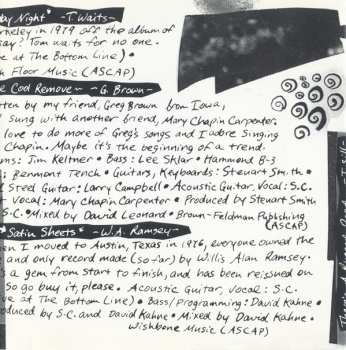 day Night" -T. Waits-
rkeley in 1979 off the album of
say? Tom waits for no one.
e at The Bottom Line) •
h Floor Music (ASCAP)
e Cool Remove ~ -G. Brown-
tten by my friend, Greg Brown from Iowa,
I sung with another friend, Mary Chapin Carpenter.
love to do more of Greg's songs and I adore singing
Chapin. Maybe it's the beginning of a trend.
ums: Jim Keltner • Bass: Lee Sklar • Hammond B-3
: Benmont Tench • Guitars, Keyboards: Steuart Smith •
l Steel Guitar: Larry Campbell • Acoustic Guitar, Vocal: S.C.
t Vocal: Mary Chapin Carpenter • Produced by Steuart Smith
S.C. • Mixed by David Leonard • Brown-Feldman Publishing
(ASCAP)
"Satin Sheets" -W.A. Ramsey-
en I moved to Austin, Texas in 1976, everyone owned the
and only record made (so far) by Willis Alan Ramsey.
s a gem from start to finish, and has been reissued on
So go buy it, please. Acoustic Guitar, Vocal: S.C.
ve at The Bottom Line) • Bass/Programming: David Kahne •
oduced by S.C. and David Kahne • Mixed by David Kahne •
Wishbone Music (ASCAP)